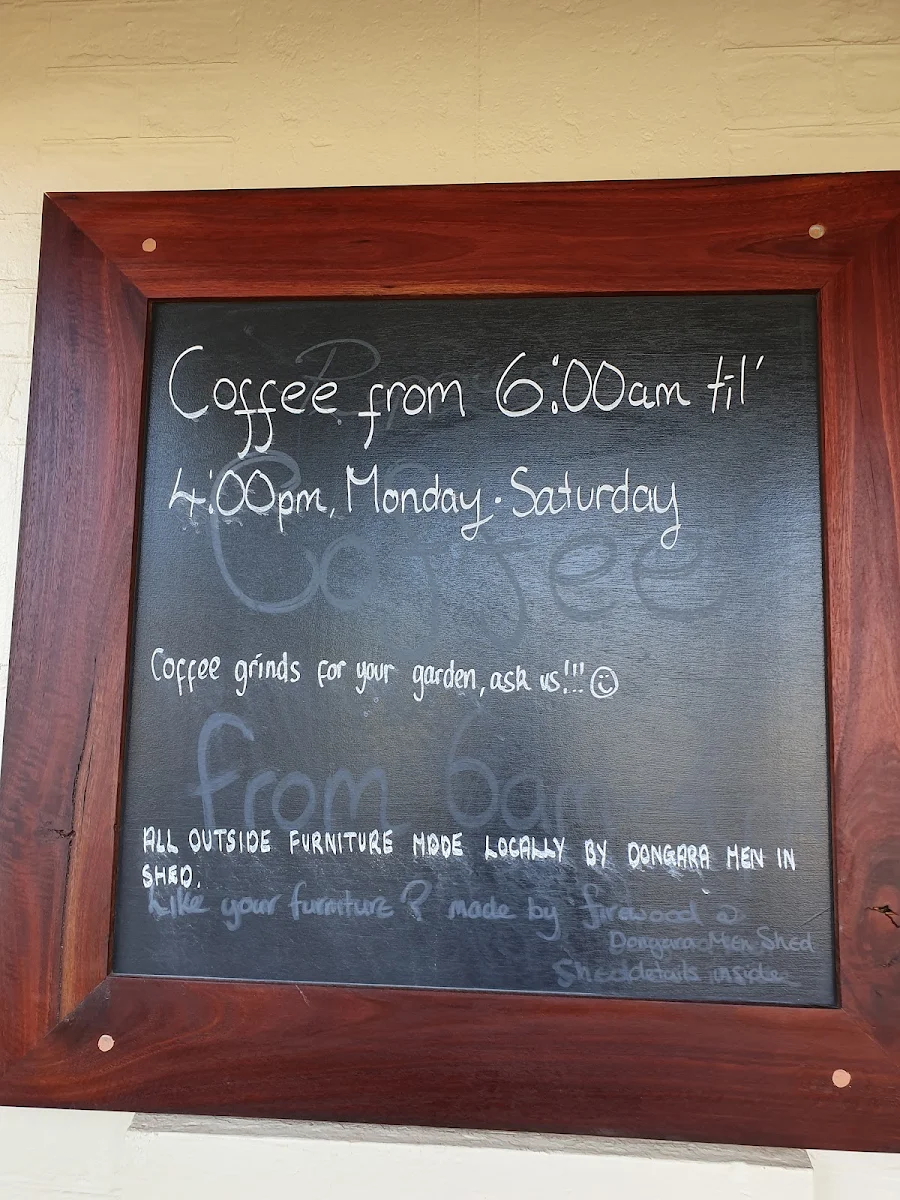 Coffee from 6:00am til'
4:00pm, Monday - Saturday
Coffee
Coffee grinds for your garden, ask us!!!
from 6am
ALL OUTSIDE FURNITURE MADE LOCALLY BY DONGARA MEN IN
SHED.
Like your furniture? made by firewood
Dongara Men Shed
Shed details inside